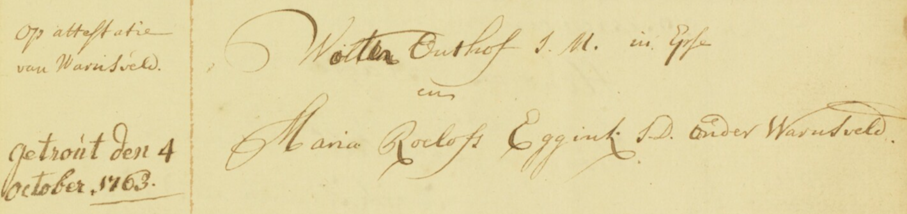 Op attestatie
van Warnsveld.
getrout den 4
october, 1763.
Wolter Outhof J. M. in Epse
en
Maria Roelofs Eggink J.D. onder Warnsveld.